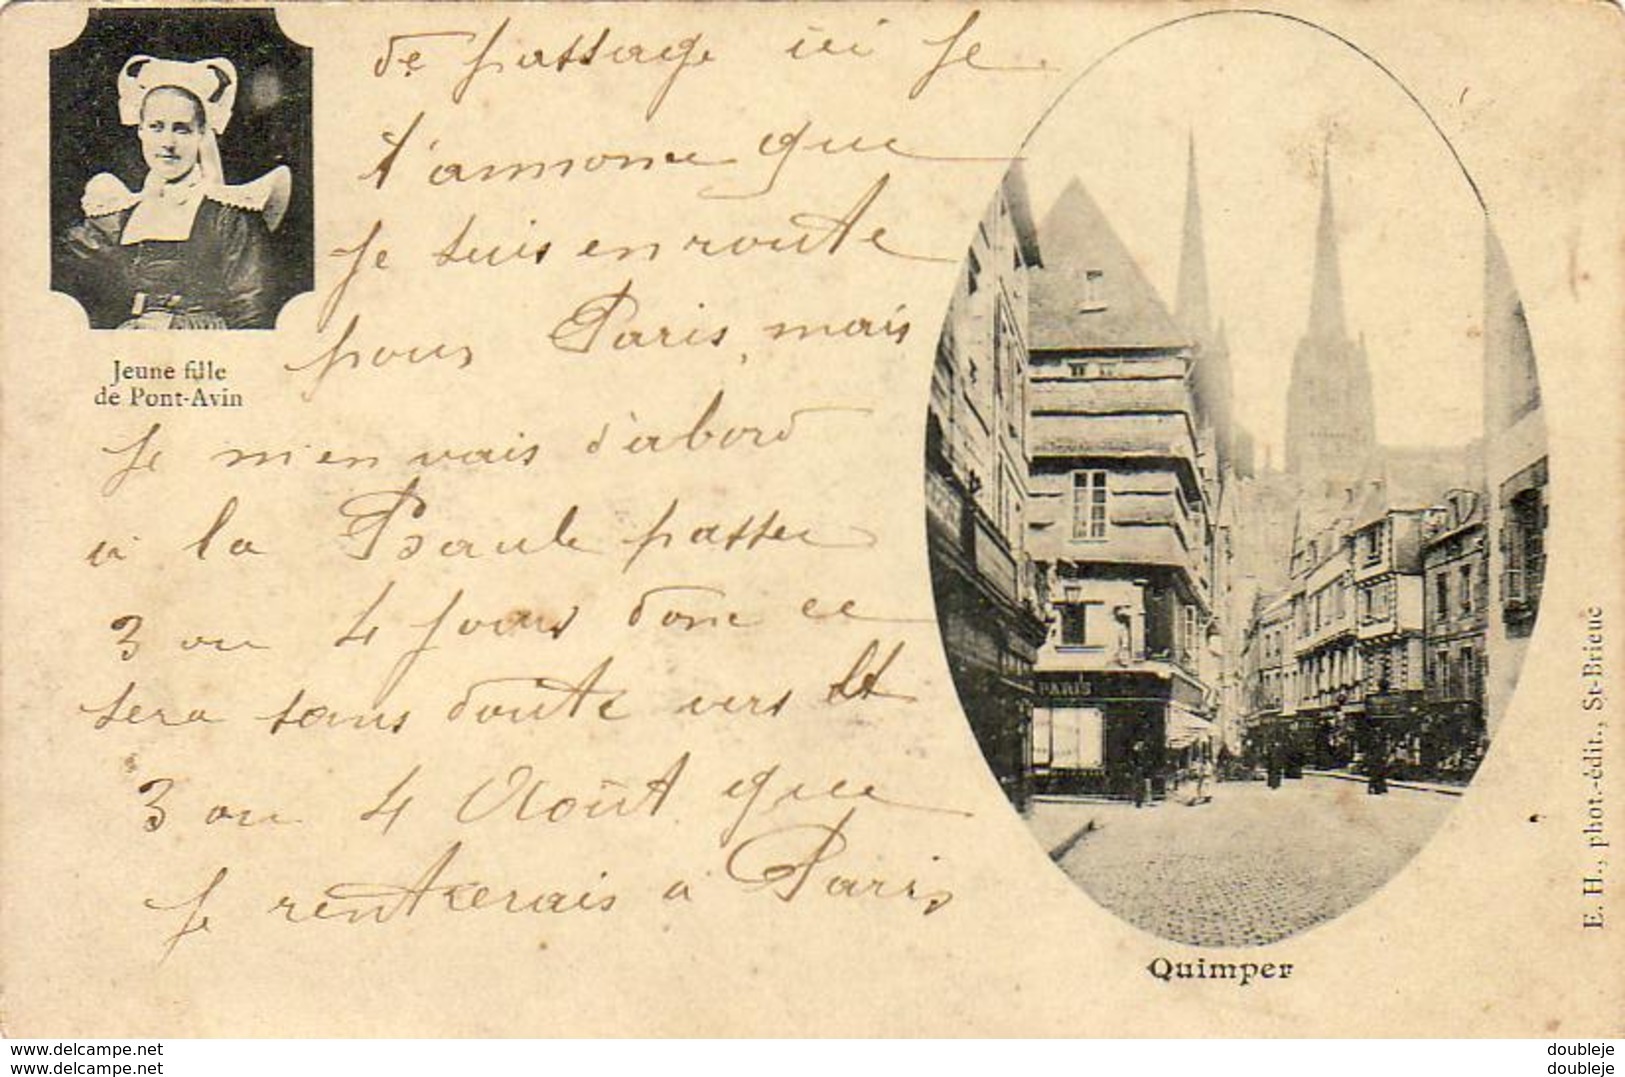 de passage ici je
t'annonce que
je suis en route
pour Paris, mais
je m'en vais d'abord
à la Baule passer
3 ou 4 jours donc ce
sera sans doute vers le
3 ou 4 Août que
je rentrerais à Paris
Jeune fille
de Pont-Avin
PARIS
Quimper
E. H., phot.-édit., St-Brieuc
www.delcampe.net
www.delcampe.net
doubleje
doubleje